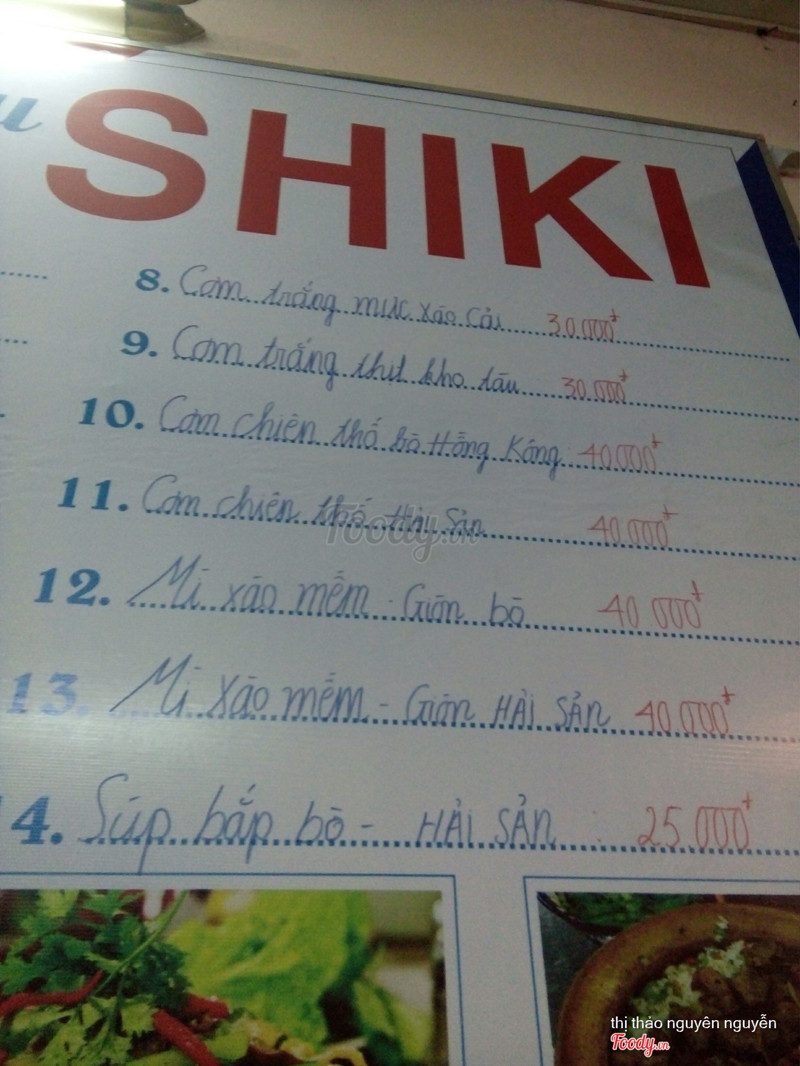 SHIKI
8. Cơm trắng mực xào cải 30.000đ
9. Cơm trắng thịt kho tàu 30.000đ
10. Cơm chiên thố bò Hồng Kông: 40.000đ
11. Cơm chiên thố Hải Sản 40.000đ
12. Mì xào mềm - Giòn bò 40.000đ
13. Mì xào mềm - Giòn HẢI SẢN 40.000đ
14. Súp bắp bò - HẢI SẢN : 25.000đ
Foody.vn
thị thảo nguyên nguyễn
Foody.vn